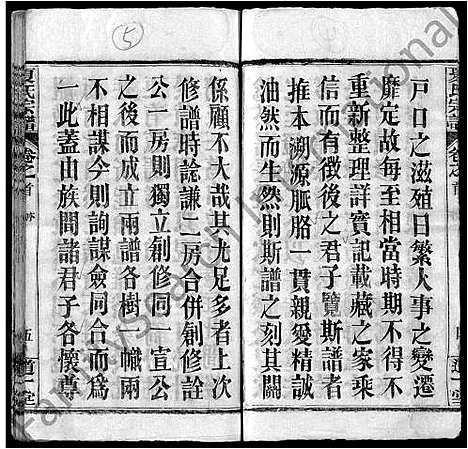 戶口之滋殖日繁人事之變遷
靡定故每至相當時期不得不
重新整理詳實記載藏之家乘
信而有徵後之君子覽斯譜者
推本溯源脈胳一貫親愛精誠
油然而生然則斯譜之刻其關
係顧不大哉其尤足多者上次
修譜時誌謙二房合併創修詮
公一房則獨立創修同一宣公
之後而成立兩譜各樹一幟兩
不相謀今則詢謀僉同合而爲
一此蓋由族間諸君子各懷尊
夏氏宗譜
卷之首
五
道一堂
5